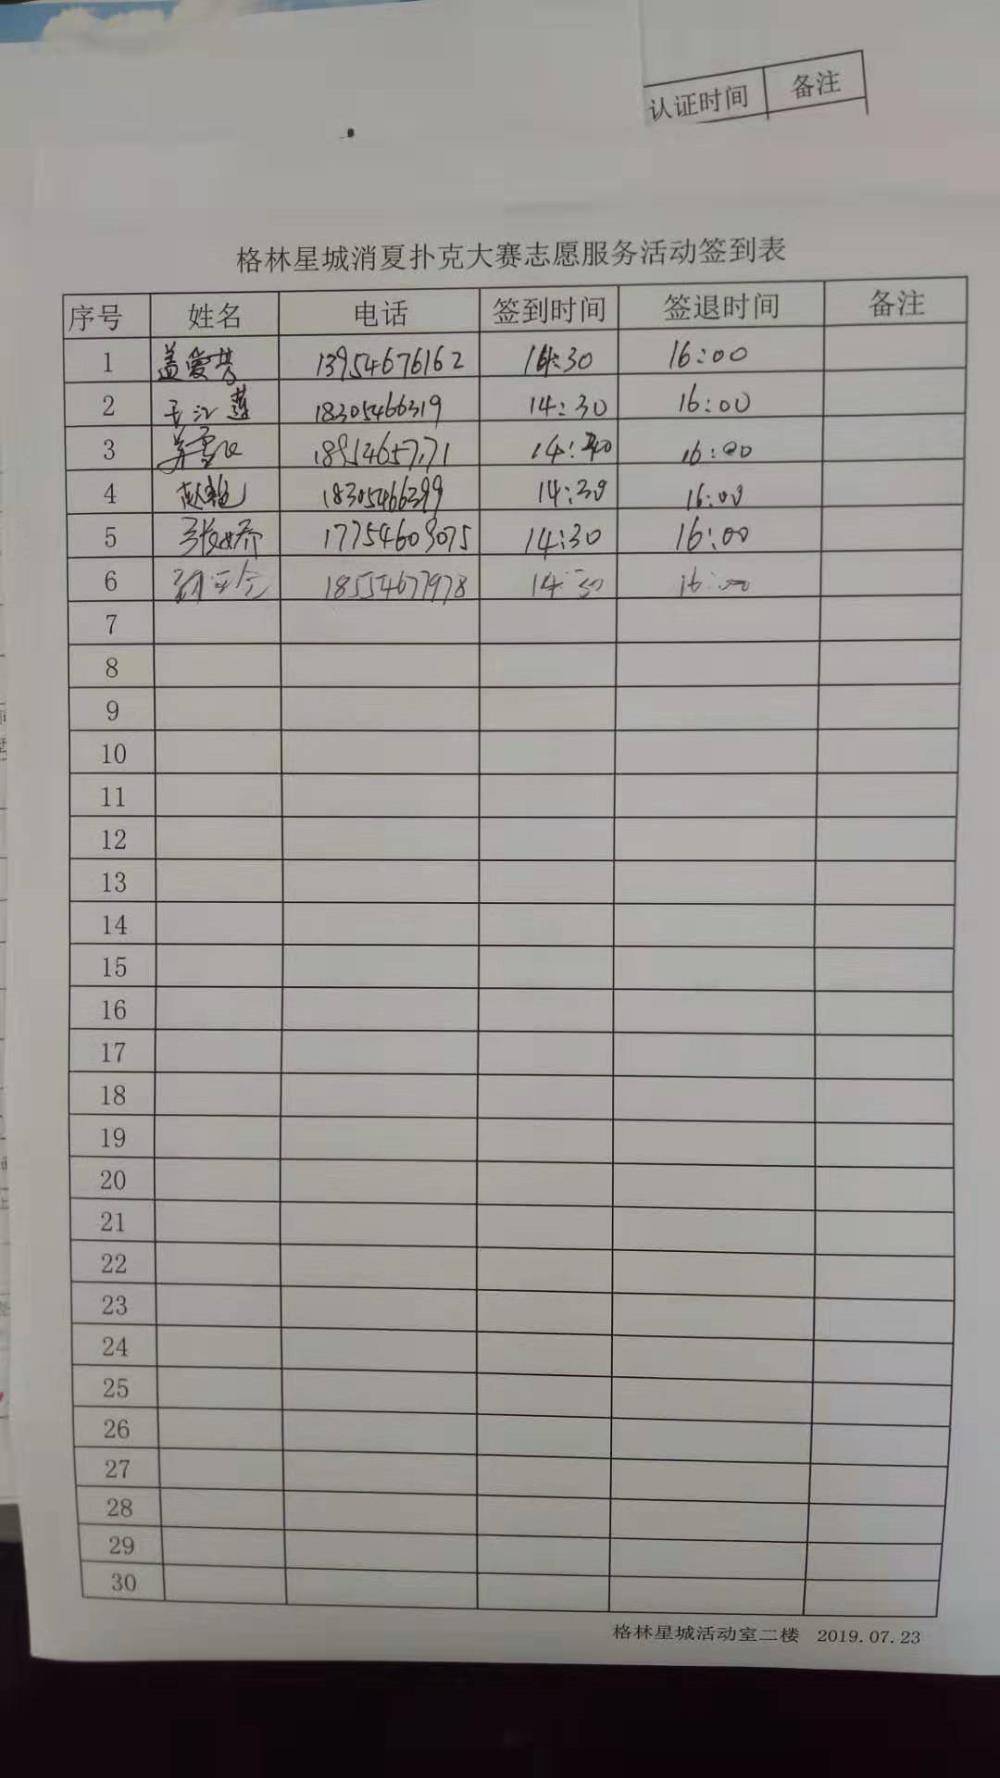 认证时间 备注
格林星城消夏扑克大赛志愿服务活动签到表
序号 姓名 电话 签到时间 签退时间 备注
1 盖爱芳 13954676162 14:30 16:00
2 王江莲 18305466319 14:30 16:00
3 18954657771 14:40 16:00
4 赵艳 18305466399 14:30 16:00
5 张娇 17754609075 14:30 16:00
6 18554677978 14:30 16:00
7
8
9
10
11
12
13
14
15
16
17
18
19
20
21
22
23
24
25
26
27
28
29
30
格林星城活动室二楼 2019.07.23